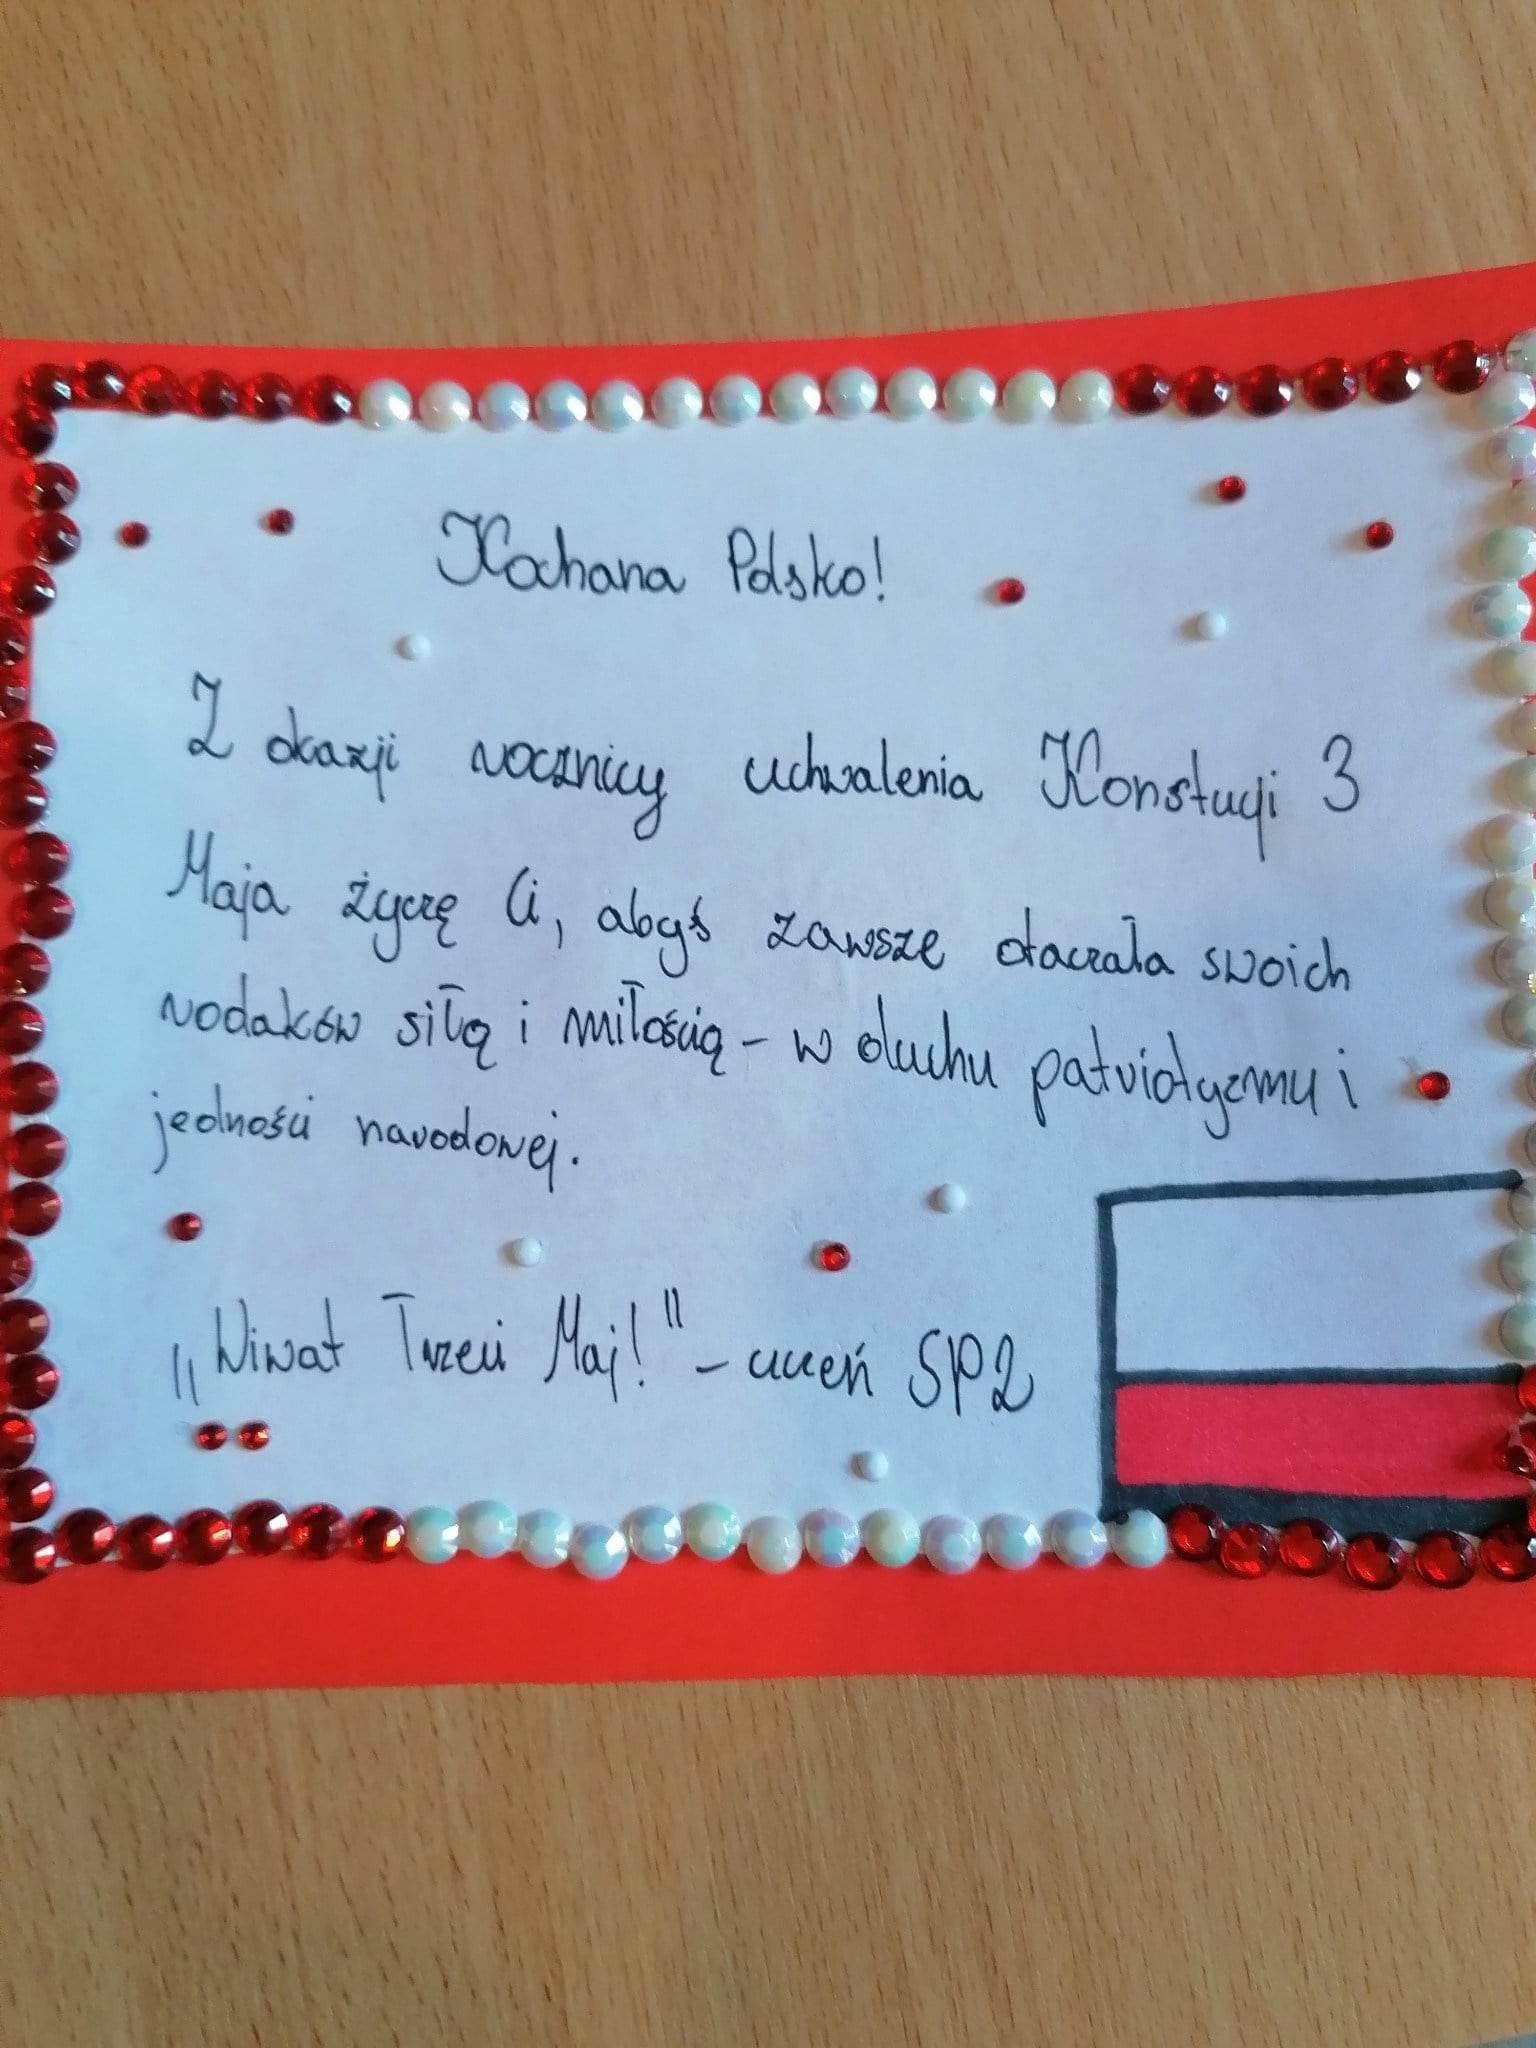 Kochana Polsko!
Z okazji rocznicy uchwalenia Konstucji 3
Maja życzę Ci, abyś zawsze otaczała swoich
rodaków siłą i miłością - w duchu patriotyzmu i
jedności narodowej.
„Wiwat Trzeci Maj!" - uczeń SP2